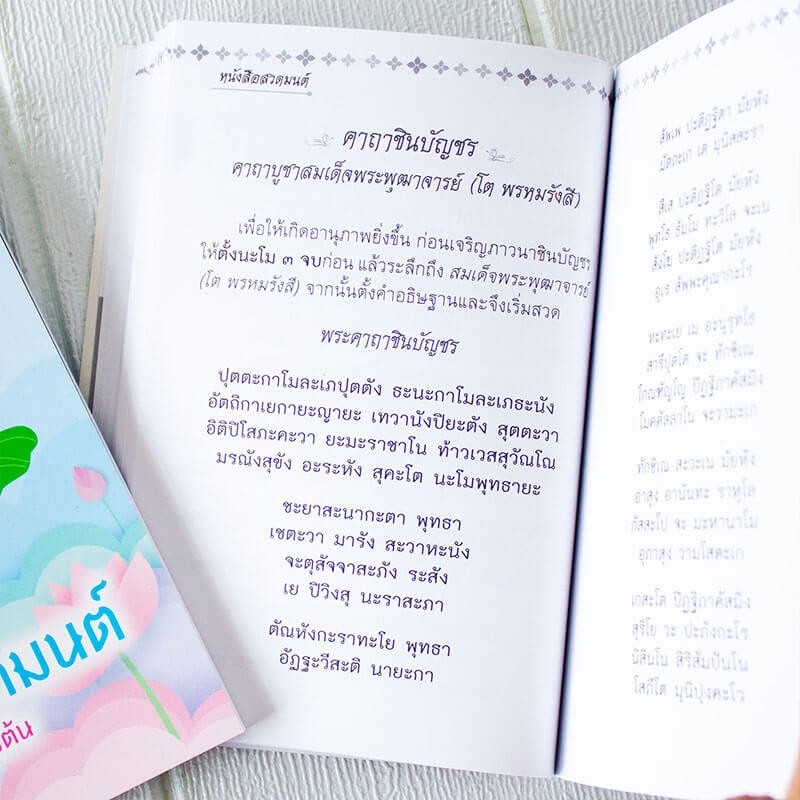 หนังสือสวดมนต์
คาถาชินบัญชร
คาถาบูชาสมเด็จพระพุฒาจารย์ (โต พรหมรังสี)
เพื่อให้เกิดอานุภาพยิ่งขึ้น ก่อนเจริญภาวนาชินบัญชร
ให้ตั้งนะโม ๓ จบก่อน แล้วระลึกถึง สมเด็จพระพุฒาจารย์
(โต พรหมรังสี) จากนั้นตั้งคำอธิษฐานและจึงเริ่มสวด
พระคาถาชินบัญชร
ปุตตะกาโมละเภปุตตัง ธะนะกาโมละเภธะนัง
อัตถิกาเยกายะญายะ เทวานังปิยะตัง สุตตะวา
อิติปิโสภะคะวา ยะมะราชาโน ท้าวเวสสุวัณโณ
มรณังสุขัง อะระหัง สุคะโต นะโมพุทธายะ
ชะยาสะนากะตา พุทธา
เชตะวา มารัง สะวาหะนัง
จะตุสัจจาสะภัง ระสัง
เย ปิวิงสุ นะราสะภา
ตัณหังกะราทะโย พุทธา
อัฏฐะวีสะติ นายะกา
สัพเพ ปะติฏฐิตา มัยหัง
มัตถะเก เต มุนิสสะรา
สีเส ปะติฏฐิโต มัยหัง
พุทโธ ธัมโม ทะวิโล จะเน
สังโฆ ปะติฏฐิโต มัยหัง
อุเร สัพพะคุณากะโร
หะทะเย เม อะนุรุทโธ
สารีปุตโต จะ ทักขิเณ
โกณฑัญโญ ปิฏฐิภาคัสมิง
โมคคัลลาโน จะวามะเก
ทักขิเณ สะวะเน มัยหัง
อาสุง อานันทะ ราหุโล
กัสสะโป จะ มะหานาโม
อุภาสุง วามโสตะเก
เกสะโต ปิฏฐิภาคัสมิง
สุริโย วะ ปะภังกะโร
นิสินโน สิริสัมปันโน
โสภีโต มุนิปุงคะโว
มนต์
ต้น